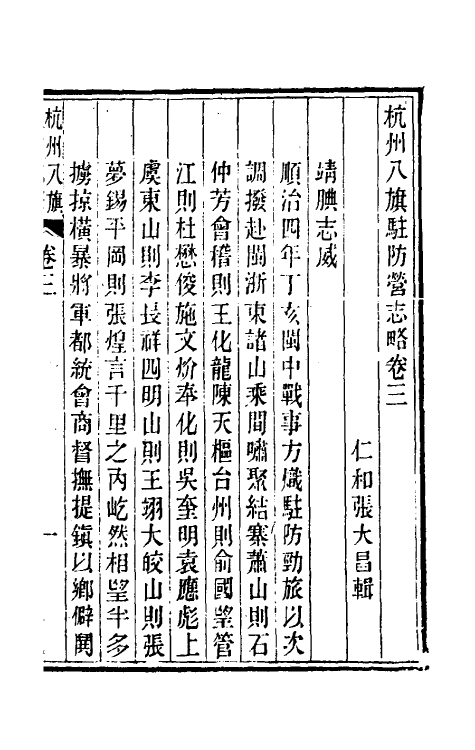 杭州八旗駐防營志略卷三
仁和張大昌輯
靖腆志威
順治四年丁亥閩中戰事方熾駐防勁旅以次
調撥赴閩浙東諸山乘間嘯聚結寨蕭山則石
仲芳會稽則王化龍陳天樞台州則俞國望管
江則杜懋俊施文炌奉化則吳奎明袁應彪上
虞東山則李長祥四明山則王翊大皎山則張
夢錫平岡則張煌言千里之內屹然相望半多
擄掠橫暴將軍都統會商督撫提鎮以鄉僻閧
杭州八旗
卷三
一